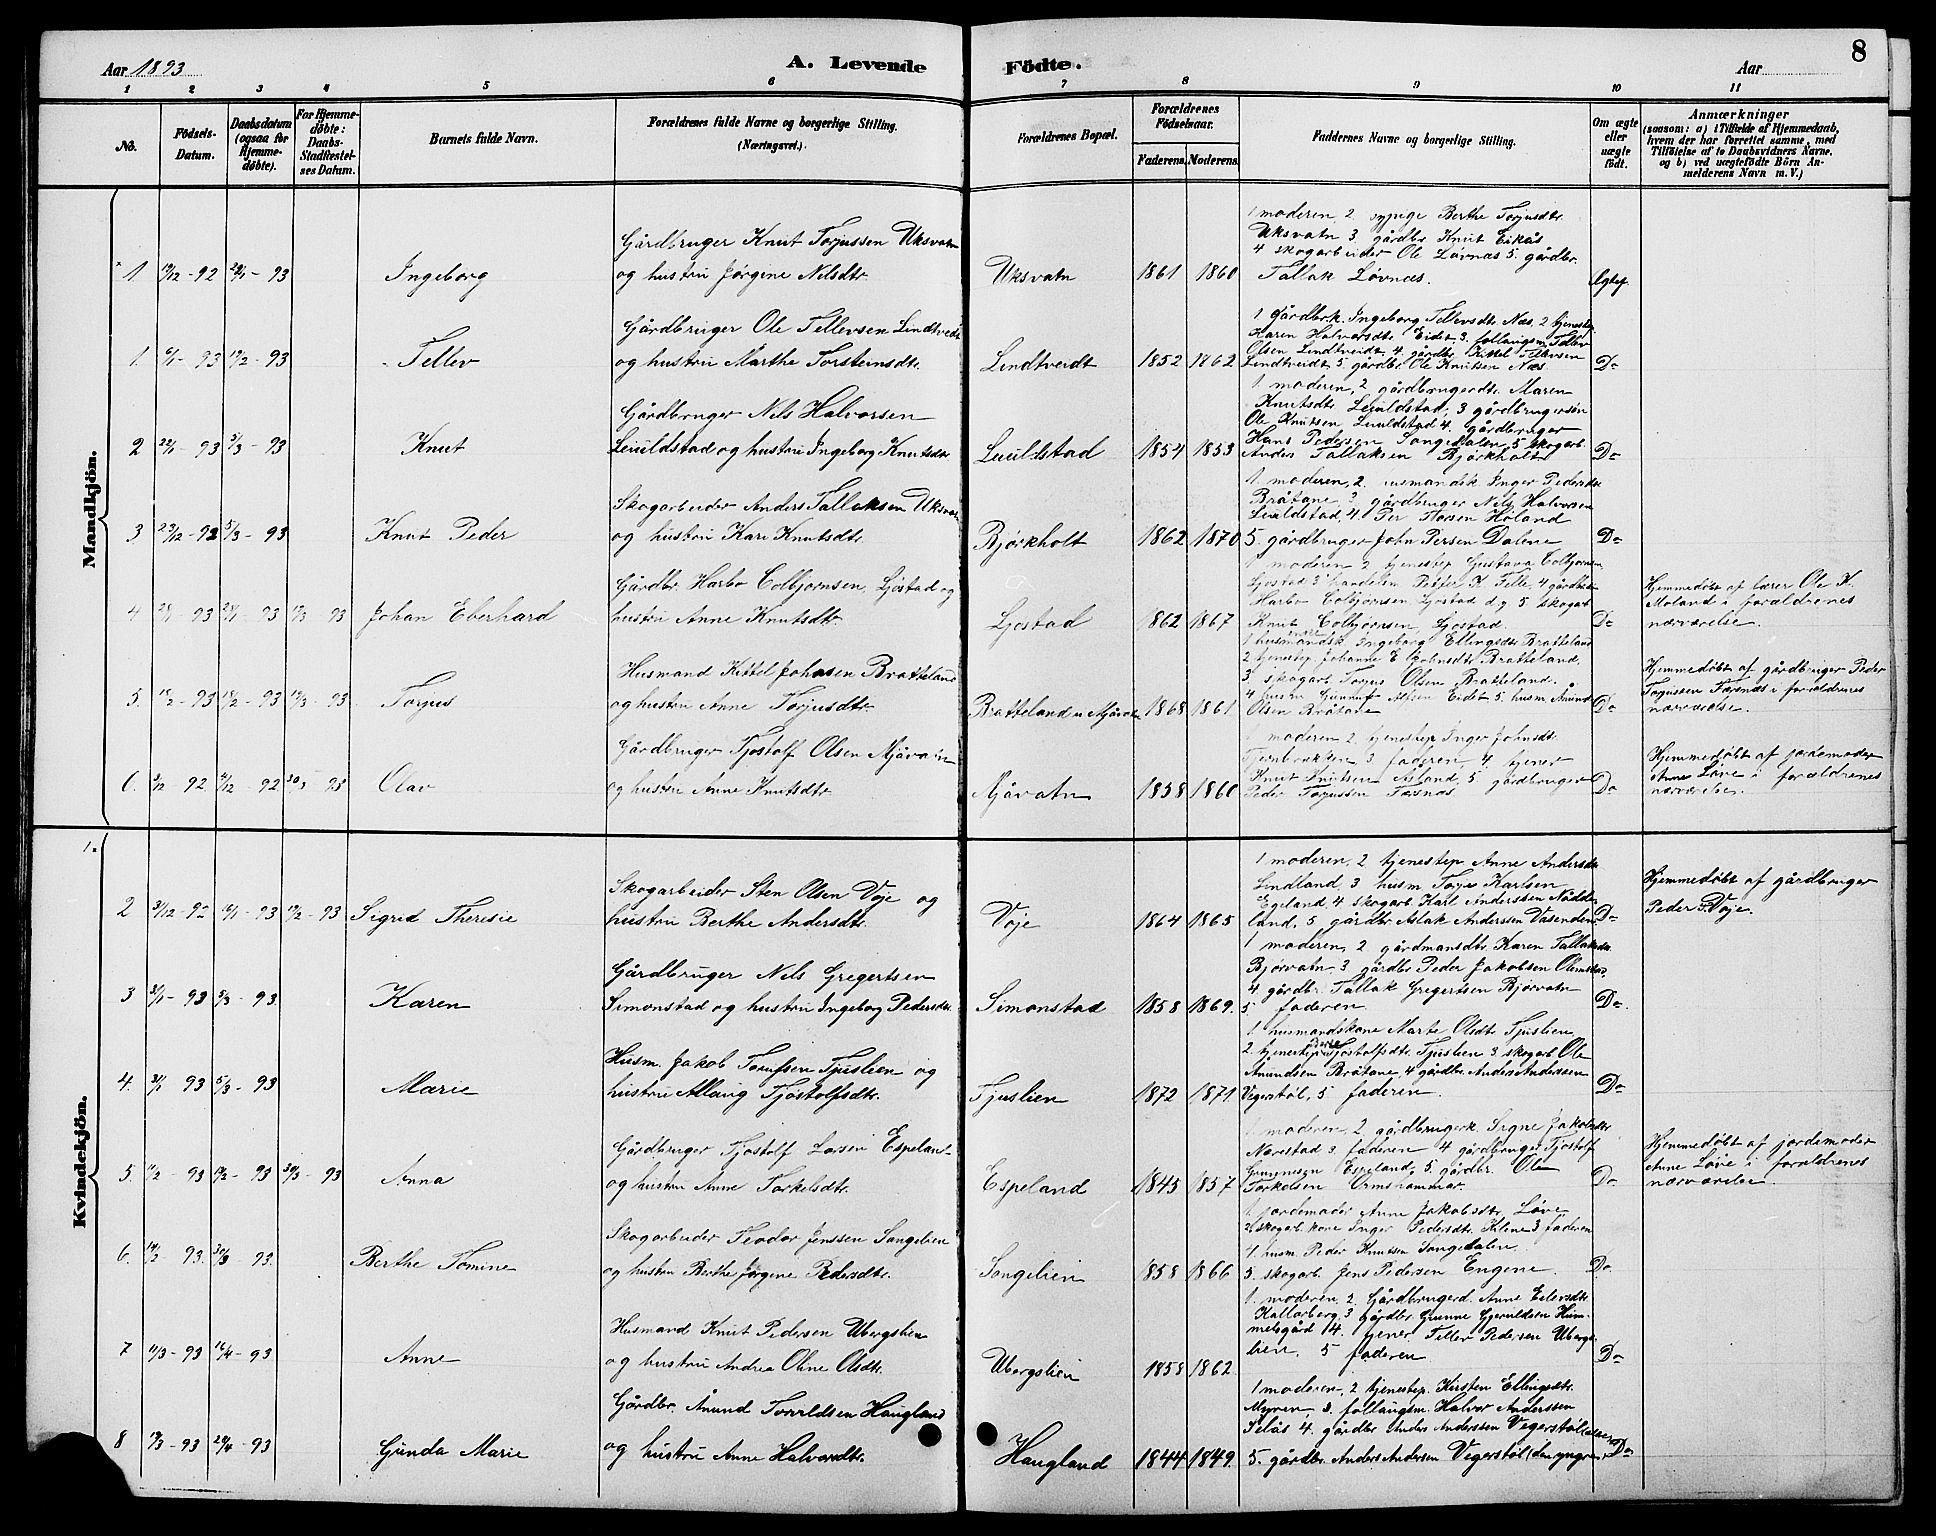 Aar 1893 A. Levende
Födte. Aar 8
1 2 3 4 5 6 7 8 9 10 11
No.
Födsels-
Datum.
Daabsdatum
(ogsaa for
Hjemme-
döbte).
For Hjemme-
döbte:
Daabs-
Stadfæstel-
ses Datum.
Barnets fulde Navn.
Forældrenes fulde Navne og borgerlige Stilling.
(Næringsvei.)
Forældrenes Bopæl.
Forældrenes
Födselsaar.
Faderens. Moderens.
Faddernes Navne og borgerlige Stilling.
Om ægte
eller
uægte
födt.
Anmærkninger
(saasom: a) i Tilfælde af Hjemmedaab,
hvem der har forrettet samme, med
Tilföielse af to Daabsvidners Navne,
og b) ved uægtefödte Börn An-
melderens Navn m. V.)
Mandkjön.
1 19/12-92 29/1-93 Ingeborg
Gårdbruger Knut Torjussen Uksvatn
og hustru Jørgine Nilsdtr.
Uksvatn 1861 1860
1 moderen, 2. pige Berthe Torjusdtr.
Uksvatn 3 gårdbr. Knut Eikås
4 skogarbeider Ole Løvnæs 5. gårdbr.
Tallak Løvnæs.
Ægtef.
1. 6/1-93 19/2-93 Tellev
Gårdbruger Ole Tellevsen Lindtveit
og hustru Marthe Torsteinsdtr.
Lindtveidt 1852 1862
1 Gårdbrk. Ingeborg Tellevsdtr. Næs, 2 tjenestep
Karen Halvorsdtr. Eidet 3. follaugsm. Tellev
Olsen Lindtveidt 4 gårdbr. Kittel Tellevsen
Lindtveidt 5. gårdbr. Ole Knutsen Næs
Do
2 22/1-93 5/3-93 Knut
Gårdbruger Nils Halvorsen
Leuildstad og hustru Ingeborg Knutsdtr
Leuildstad 1854 1853
1. moderen, 2 gårdbrugerdtr. Maren
Knutsdtr Leuildstad, 3 gårdbrugersøn
Ole Knutsen Leuildstad 4. gårdbruger
Hans Pedersen Songedalen, 5 skogarb.
Anders Tallaksen Bjørkholt
Do
3 23/12-92 5/3-93 Knut Peder
Skogarbeider Anders Tallaksen Uksvatn
og hustru Kari Knutsdtr.
Bjørkholt 1862 1870
1. moderen, 2. husmandsk. Inger Pedersdtr
Bråtane, 3 gårdbruger Nils Halvorsen
Leuildstad, 4. Per Høland
5. gårdbruger John Persen Dalene
Do
4 28/1-93 28/1-93 12/3-93 Johan Eberhard
Gårdbr. Harbo Colbjørnsen, Ljøstad og
hustru Anne Knutsdtr.
Ljøstad 1862 1867
1 moderen 2 tjenestep Gustava Colbjørnsen
Ljøstad 3 handelsm. Petter K. Telle 4 gårdbr.
Harbo Colbjørnsen Ljøstad d.y. 5. skogarb
Knut Colbjørnsen, Ljøstad.
Do
Hjemmedøbt af lærer Ole K.
Moland i forældrenes
nærværelse.
5. 12/2-93 12/2-93 12/3-93 Torjus
Husmand Kittel Johnsen Bratteland
og hustru Anne Torjusdtr.
Bratteland u. Njåvatn 1868 1861
1 husmandsk. Ingeborg Ellingsdtr Bratteland
2 tjenestep. Johanne E. Johnsdtr Bratteland.
3. skogarb. Torjus Olsen Bratteland.
4 husm Gunnuf Alfsen Eidet 5. husm. Ånund
Olsen Bråtane
Do
Hjemmedøbt af gårdbruger Peder
Torjussen Torsnæs i forældrenes
nærværelse.
6. 3/12-92 4/12-92 30/3-93 Olav
Gårdbruger Tjøstolf Olsen Njåvatn
og hustru Anne Knutsdtr.
Njåvatn 1858 1860
1 moderen 2. tjenestep Inger Johnsdtr.
Tjernbrekken 3. faderen, 4. tjener
Knut Knutsen Asland, 5 gårdbruger
Peder Torjussen Torsnæs.
Do
Hjemmedøbt af jordemoder
Anne Løve i forældrenes
nærværelse.
Kvindekjön.
1.
2 31/12-92 12/1-93 19/2-93 Sigrid Theresie
Skogarbeider Sten Olsen Voje og
hustru Berthe Andersdtr.
Voje 1864 1865
1 moderen, 2 tjenestep Anne Andersdtr
Lindland, 3 husm Torjus Karlsen
Egeland, 4 skogarb. Karl Anderssen Nødde-
land, 5 gårdbr. Aslak Anderssen Vasenden
Do
Hjemmedøbt af gårdbruger
Peder Voje.
3 31/1-93 5/3-93 Karen
Gårdbruger Nils Gregertsen
Simonstad og hustru Ingeborg Pedersdtr
Simonstad 1858 1869.
1 moderen, 2 gårdmansdtr. Karen Tallaksdtr.
Bjørvatn, 3 gårdbr. Peder Jakobsen Olimstad
4. gårdbr. Tallak Gregertsen Bjørvatn
5 faderen
Do.
4. 3/1 93 5/3-93 Marie
Husm. Jakob Tomfsen Tjuslien og
hustru Allaug Tjøstolfsdtr.
Tjuslien 1872 1871
1. husmandskone Marte Olsdtr Tjuslien
2. tjenestep. Tjøstolfsdtr. Tjuslien 3. skogarb Ole
Ånundsen Bråtane, 4 gårdbr. Anders Anderssen
Vegerstøl, 5 faderen.
Do
5. 11/2-93 12/2-93 30/3-93 Anna
Gårdbruger Tjøstolf Larsen Espeland
og hustru Anne Torkelsdtr.
Espeland 1845 1857
1. moderen, 2 gårdbrugerk. Signe Jakobsdtr
Næristad 3. faderen 4 gårdbruger Tjøstolf
Gunnersen Espeland, 5. gårdbr. Ole
Torkelsen Ormshammar.
Do
Hjemmedøbt af jordemoder
Anne Løve i forældrenes
nærværelse.
6. 14/2-93. 30/3-93. Berthe Tomine
Skogarbeider Teodor Jenssen Songelien
og hustru Berthe Jørgine Pedersdtr.
Songelien 1858 1866
1. jordemoder Anne Jakobsdtr Løve
2 skogarb. kone Inger Pedersdtr. Klene 3 faderen
4. husm. Peder Knutsen Songedalen.
5. skogarb. Jens Pedersen Engene.
Do.
7 11/3-93 16/4-93 Anne
Husmand Knut Pedersen Ubergslien
og hustru Andrea Oline Olsdtr.
Ubergslien 1858 1862
1. moderen, 2 Gårdbrugerd. Anne Eilevsdtr.
Kallarberg, 3 gårdbr. Gunne Gjeruldsen Him-
melsgård 4. tjener Tellev Pedersen Ubergs-
lien, 5 faderen
Do
8 19/3-93 20/4-93 Gunda Marie
Gårdbr. Ånund Toraldsen Haugland
og hustru Anne Halvorsdtr.
Haugland 1844 1849.
1 moderen, 2 tjenestep. Kirsten Ellingsdtr.
Myren, 3. follaugsm. Halvor Anderssen
Selås 4. gårdbr Anders Anderssen Vegerstøl
5. gårdbr. Anders Andersen Vegerstøl (den yngre)
Do